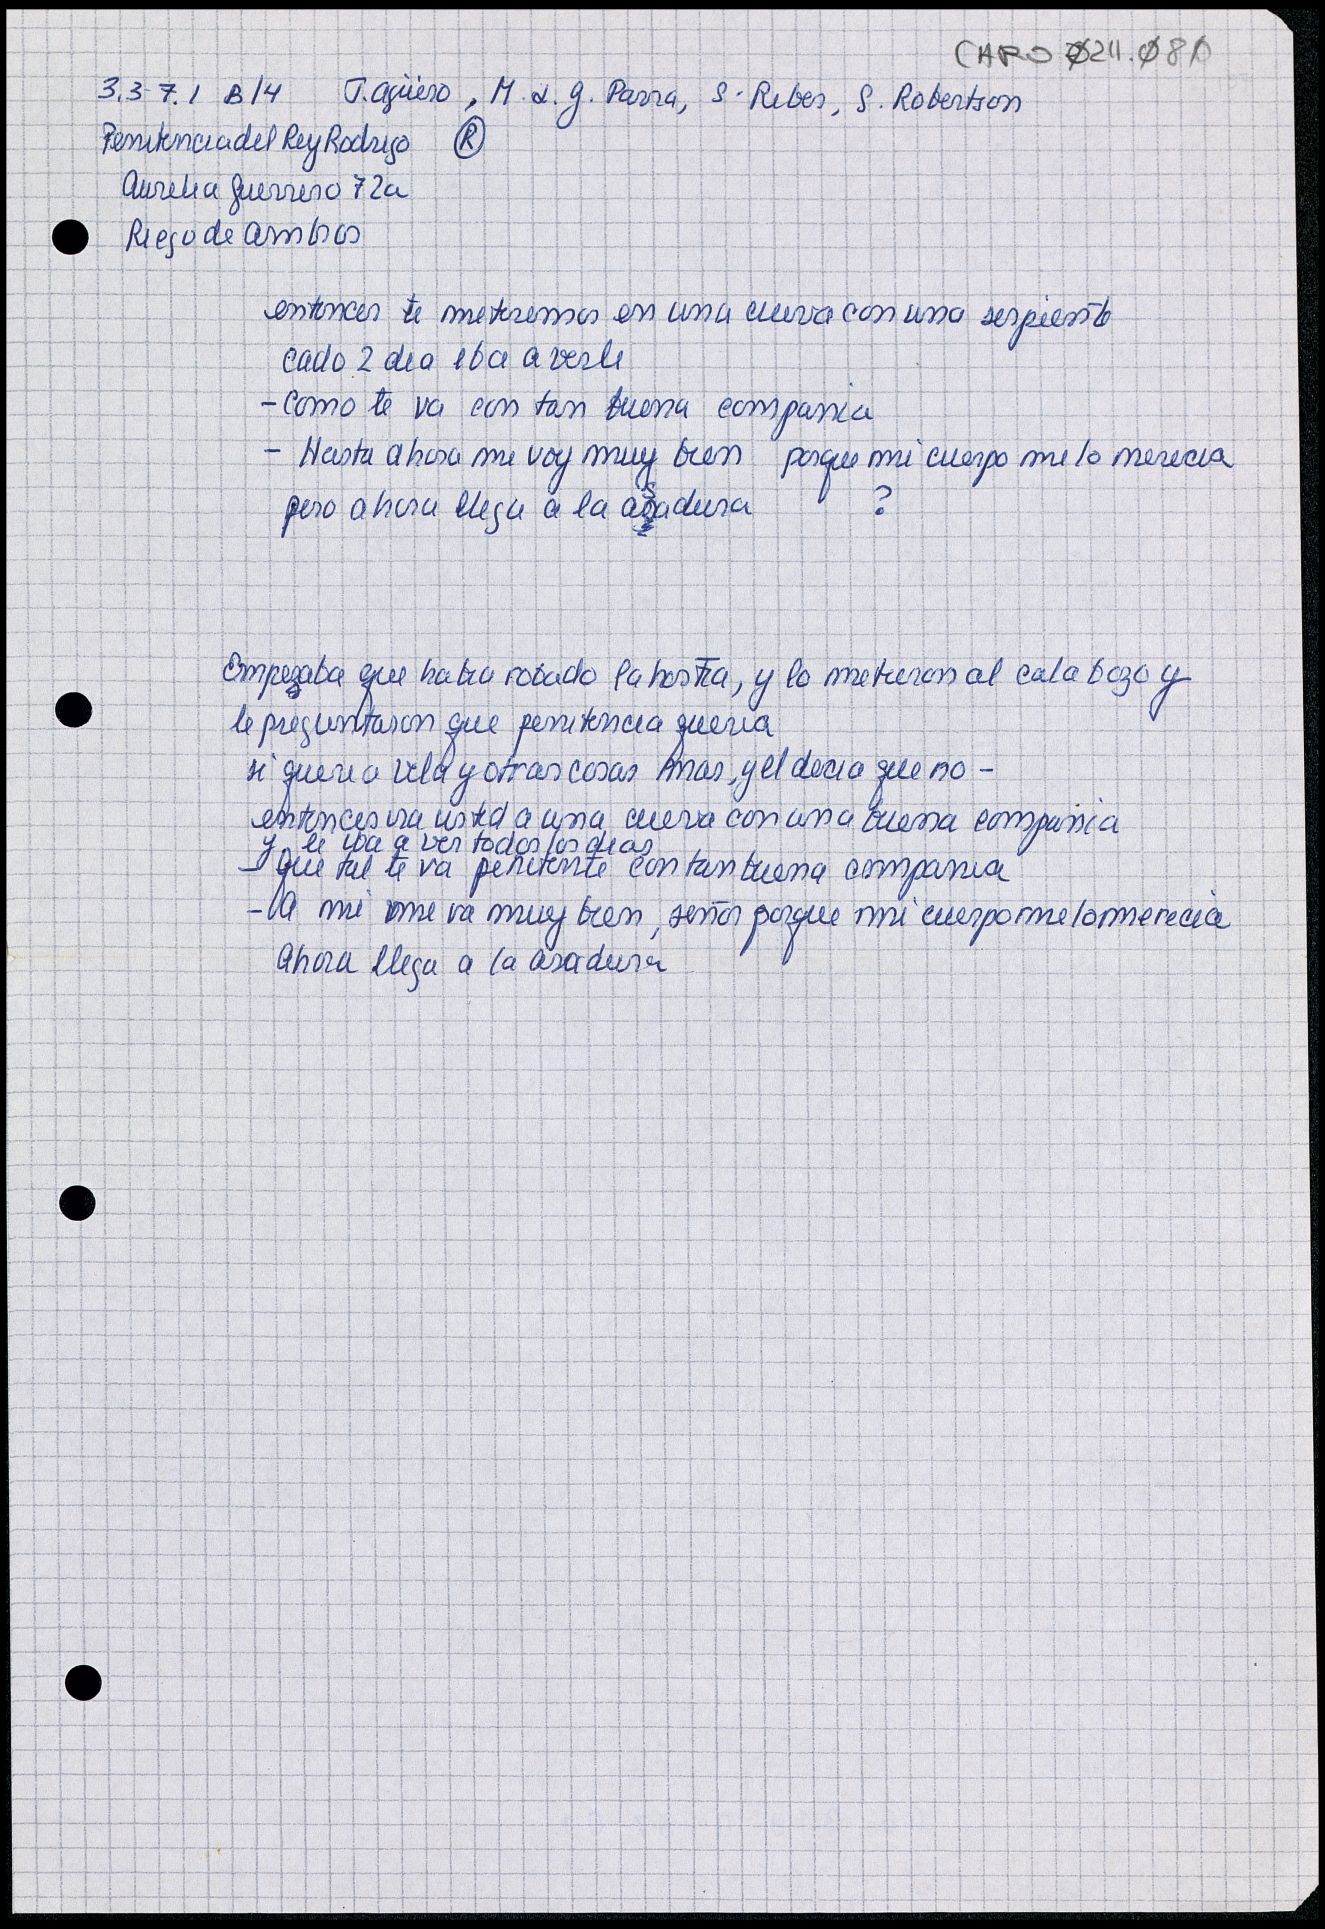 CARO 0211.080
3.3-7.1 B/4 J. Agüero, M. L. G. Parra, S. Ribes, S. Robertson
Penitencia del Rey Rodrigo Ⓡ
Aurelia Guerrero 72a
Riego de Ambros
entonces te meteremos en una cueva con una serpiente
cado 2 dia iba a verle
- Como te va con tan buena compania
- Hasta ahora me voy muy bien porque mi cuerpo me lo merecia
pero ahora llega a la asadura ?
Empezaba que habia robado la hostia, y lo metieron al calabozo y
le preguntaron que penitencia queria
si queria vela y otras cosas mas, y el decia que no -
entonces ira usted a una cueva con una buena compania
y le iba a ver todos los dias
- que tal te va penitente con tan buena compania
- A mi me va muy bien, señor porque mi cuerpo me lo merecia
Ahora llega a la asadura